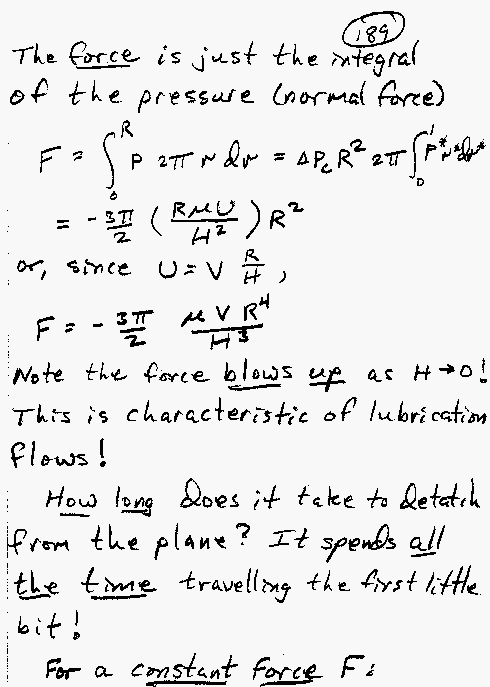 189
The force is just the integral
of the pressure (normal force)
F = ∫₀ᴿ P 2π r dr = ΔP_c R² 2π ∫₀¹ P* r* dr*
= -3π/2 (RμU/H²) R²
or, since U = V R/H,
F = -3π/2 μVR⁴/H³
Note the force blows up as H→0!
This is characteristic of lubrication
flows!
How long does it take to detatch
from the plane? It spends all
the time travelling the first little
bit!
For a constant force F: